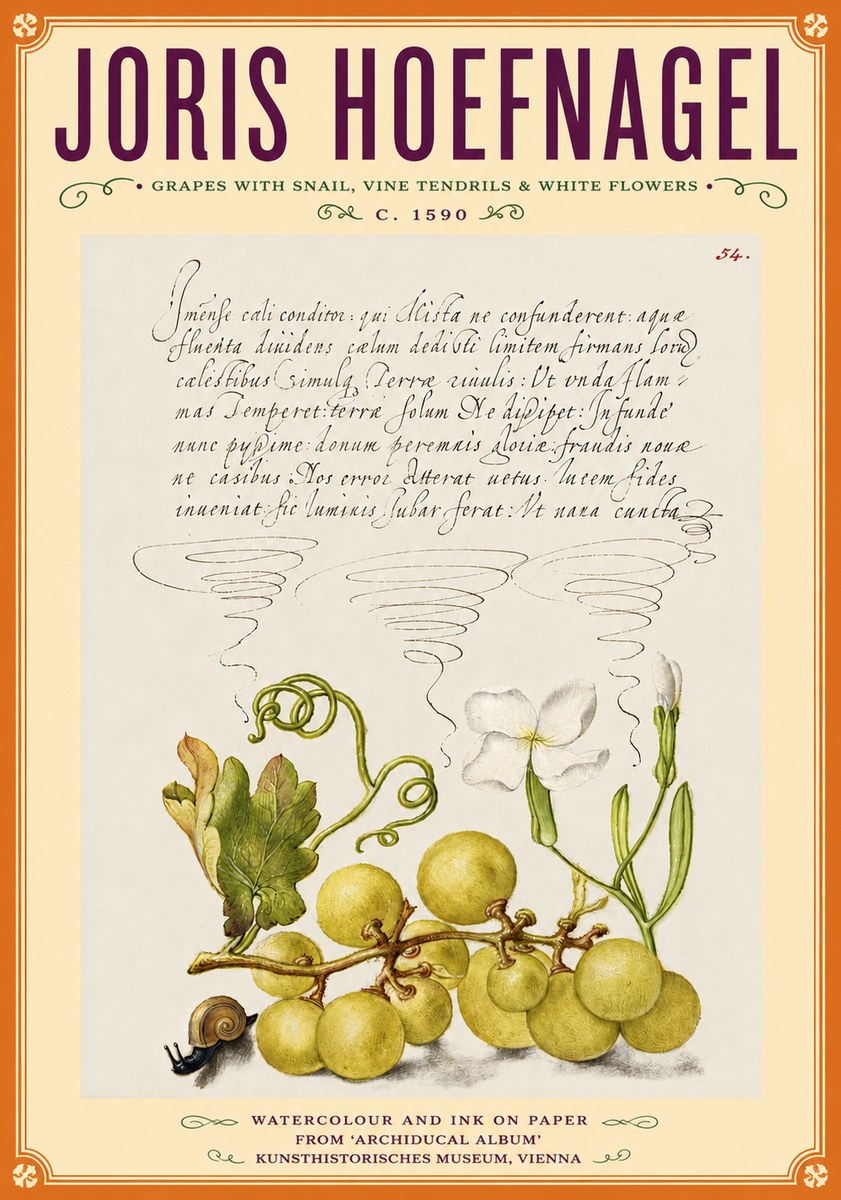 JORIS HOEFNAGEL
• GRAPES WITH SNAIL, VINE TENDRILS & WHITE FLOWERS •
C. 1590
54.
Imense cæli conditor: qui Mista ne confunderent: aquæ
fluenta diuidens cælum dedisti limitem firmans
cælestibus Simulq Terræ riuulis: Vt vnda flam-
mas Temperet: terræ solum Ne dissipet: Infunde
nunc pyssime: donum peremnis gloriæ: fraudis nouæ
ne casibus: Nos error Atterat uetus. lucem fides
inueniat: sic luminis Jubar ferat: Vt nana cuncta
WATERCOLOUR AND INK ON PAPER
FROM ‘ARCHIDUCAL ALBUM’
KUNSTHISTORISCHES MUSEUM, VIENNA